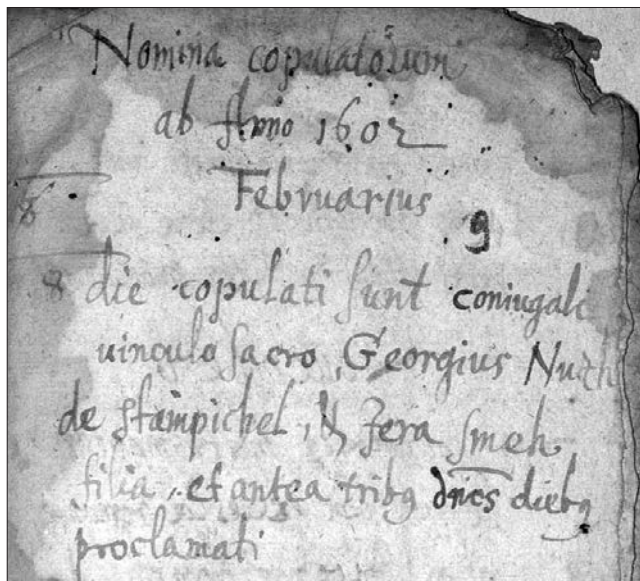 Nomina copulatorum
ab Anno 1602
Februarius
9
8 die copulati sunt coniugali
uinculo sacro, Georgius
de Stampichel, &
filia, et antea tribꝯ dn̄cs diebꝯ
proclamati